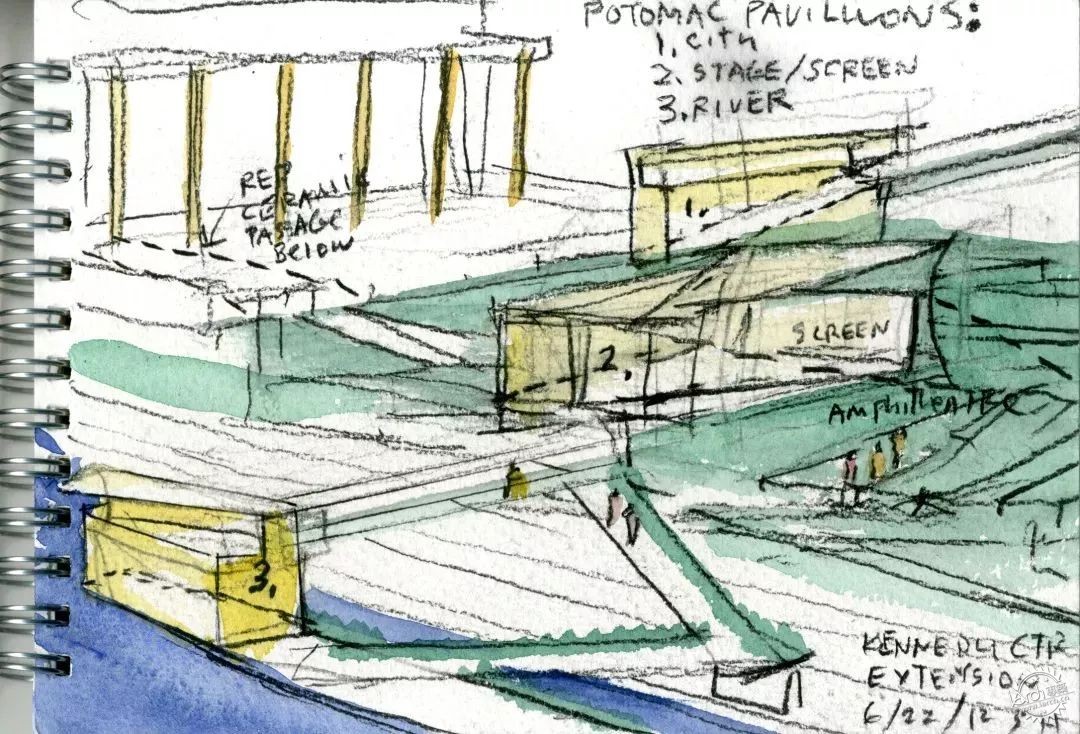 POTOMAC PAVILLIONS:
1. City
2. STAGE/SCREEN
3. RIVER
RED
CERAMIC
PASSAGE
BELOW
1.
SCREEN
2.
AMPHITEATRE
3.
KENNEDY CTR
EXTENSION
6/22/12 SH